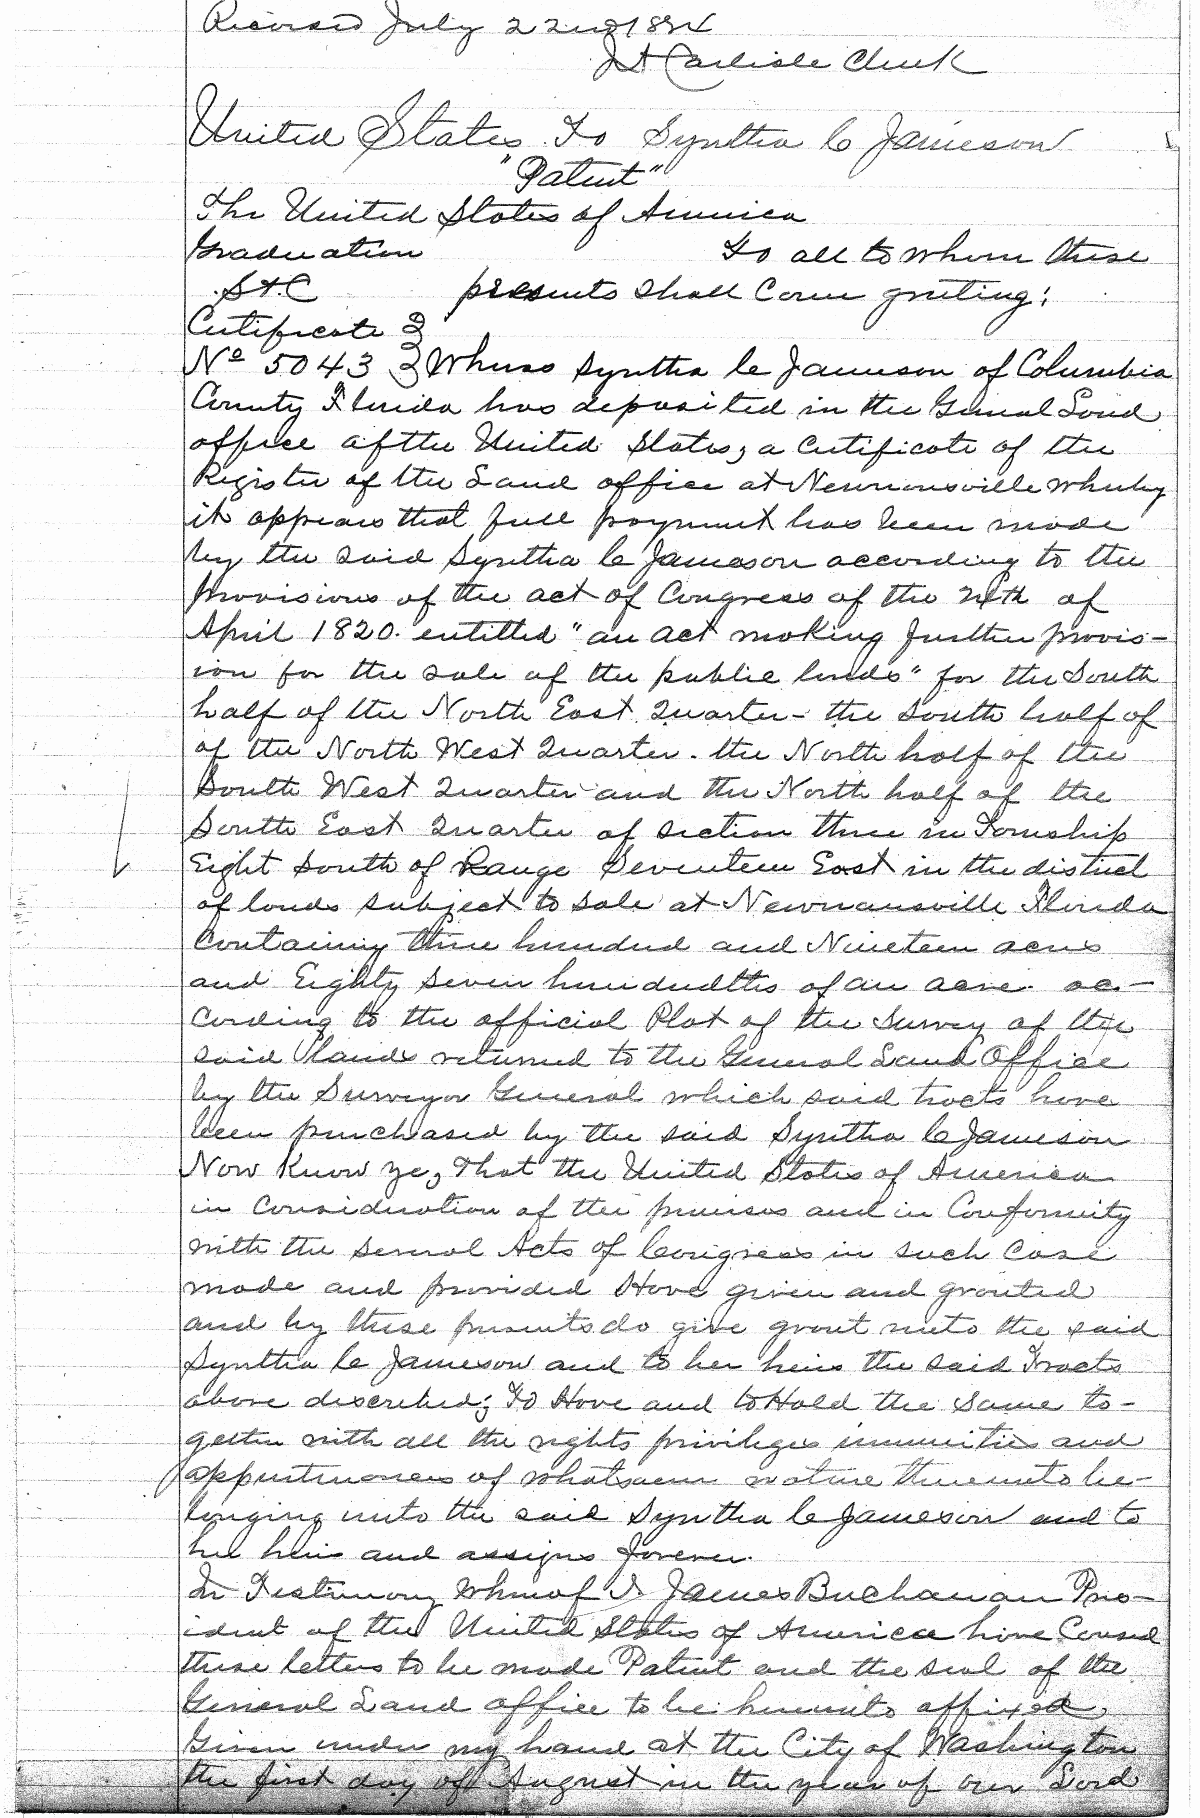 Recorded July 22nd 18
J A Carlisle Clerk
United States To Syntha C Jameson
"Patent"
The United States of America
Graduation To all to whom these
S & C presents shall Come greeting:
Certificate }
No 5043 } Whereas Syntha C Jameson of Columbia
County Florida has deposited in the General Land
office of the United States, a Certificate of the
Register of the Land office at Newnansville whereby
it appears that full payment has been made
by the said Syntha C Jameson according to the
Provisions of the act of Congress of the 24th of
April 1820. entitled "an act making further provis-
ion for the sale of the public lands" for the South
half of the North East Quarter - the South half of
of the North West Quarter. the North half of the
South West Quarter and the North half of the
South East Quarter of Section three in Township
Eight South of Range Seventeen East in the district
of lands subject to sale at Newnansville Florida
Containing three hundred and Nineteen acres
and Eighty seven hundredths of an acre. ac-
cording to the official Plat of the Survey of the
said lands returned to the General Land Office
by the Surveyor General which said tracts have
been purchased by the said Syntha C Jameson
Now Know ye, That the United States of America
in Consideration of the premises and in Conformity
with the several Acts of Congress in such Case
made and provided Have given and granted
and by these presents do give grant unto the said
Syntha C Jameson and to her heirs the said Tracts
above described; To Have and to Hold the same to-
gether with all the rights privileges immunities and
appurtenances of whatsoever nature thereunto be-
longing unto the said Syntha C Jameson and to
her heirs and assigns forever.
In Testimony Whereof I James Buchanan Pres-
ident of the United States of America have Caused
these letters to be made Patent and the seal of the
General Land office to be hereunto affixed,
Given under my hand at the City of Washington
the first day of August in the year of our Lord